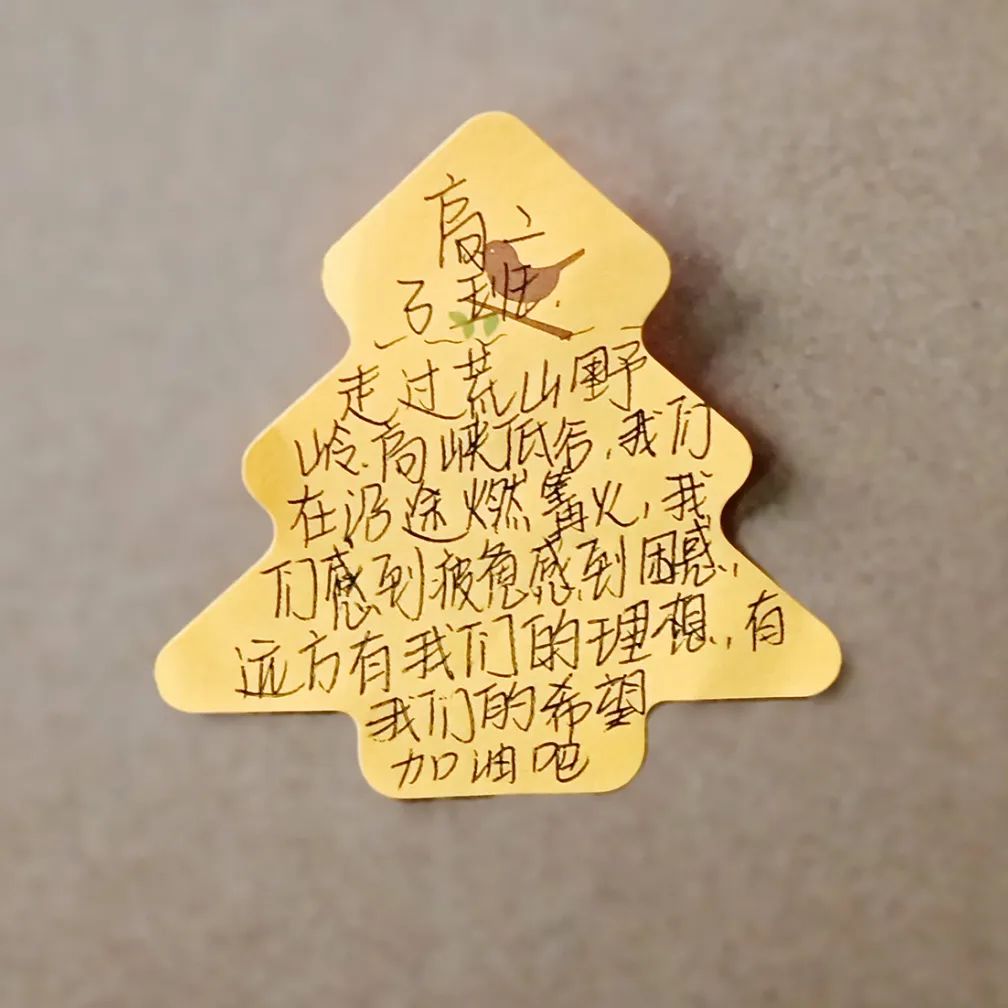 高二
3班.
走过荒山野
岭.高峡低谷,我们
在沿途燃篝火,我
们感到疲惫感到困惑,
远方有我们的理想,有
我们的希望
加油吧